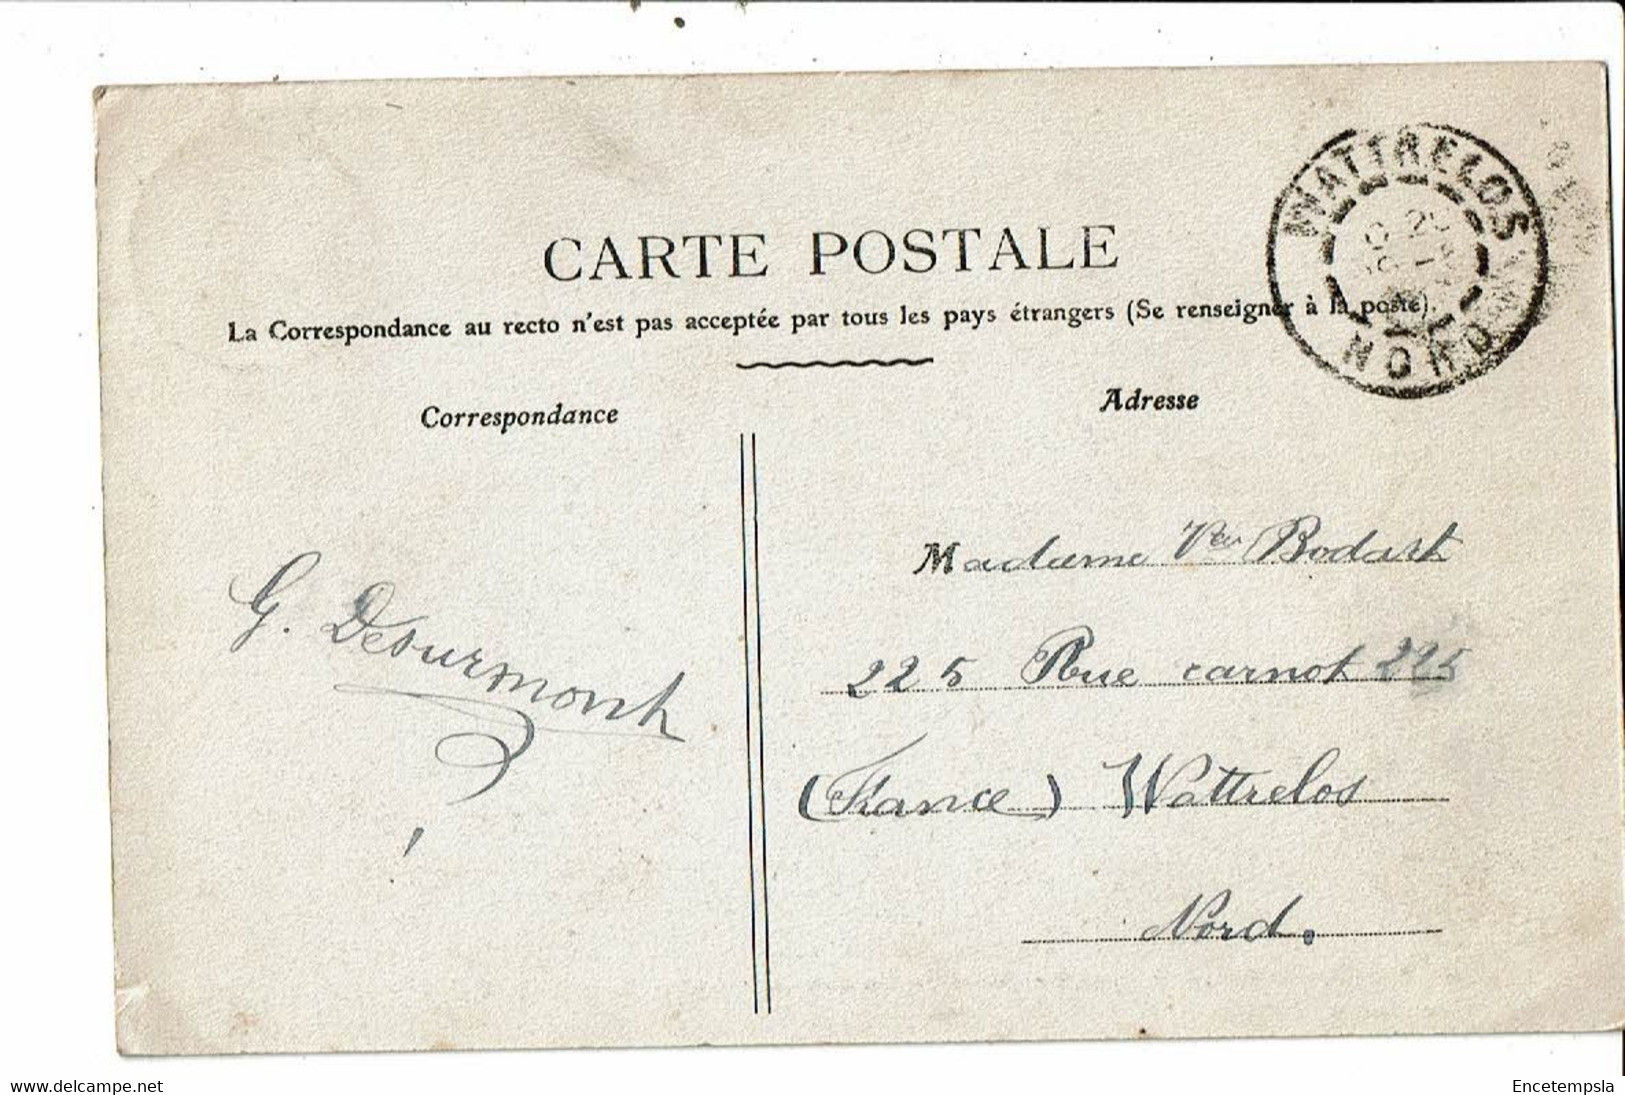 WATTRELOS
NORD
CARTE POSTALE
La Correspondance au recto n'est pas acceptée par tous les pays étrangers (Se renseigner à la poste).
Correspondance
Adresse
G. Desurmont
Madame Vve Bodart
225 Rue carnot 225
(France) Wattrelos
Nord.
www.delcampe.net
Encetempsla